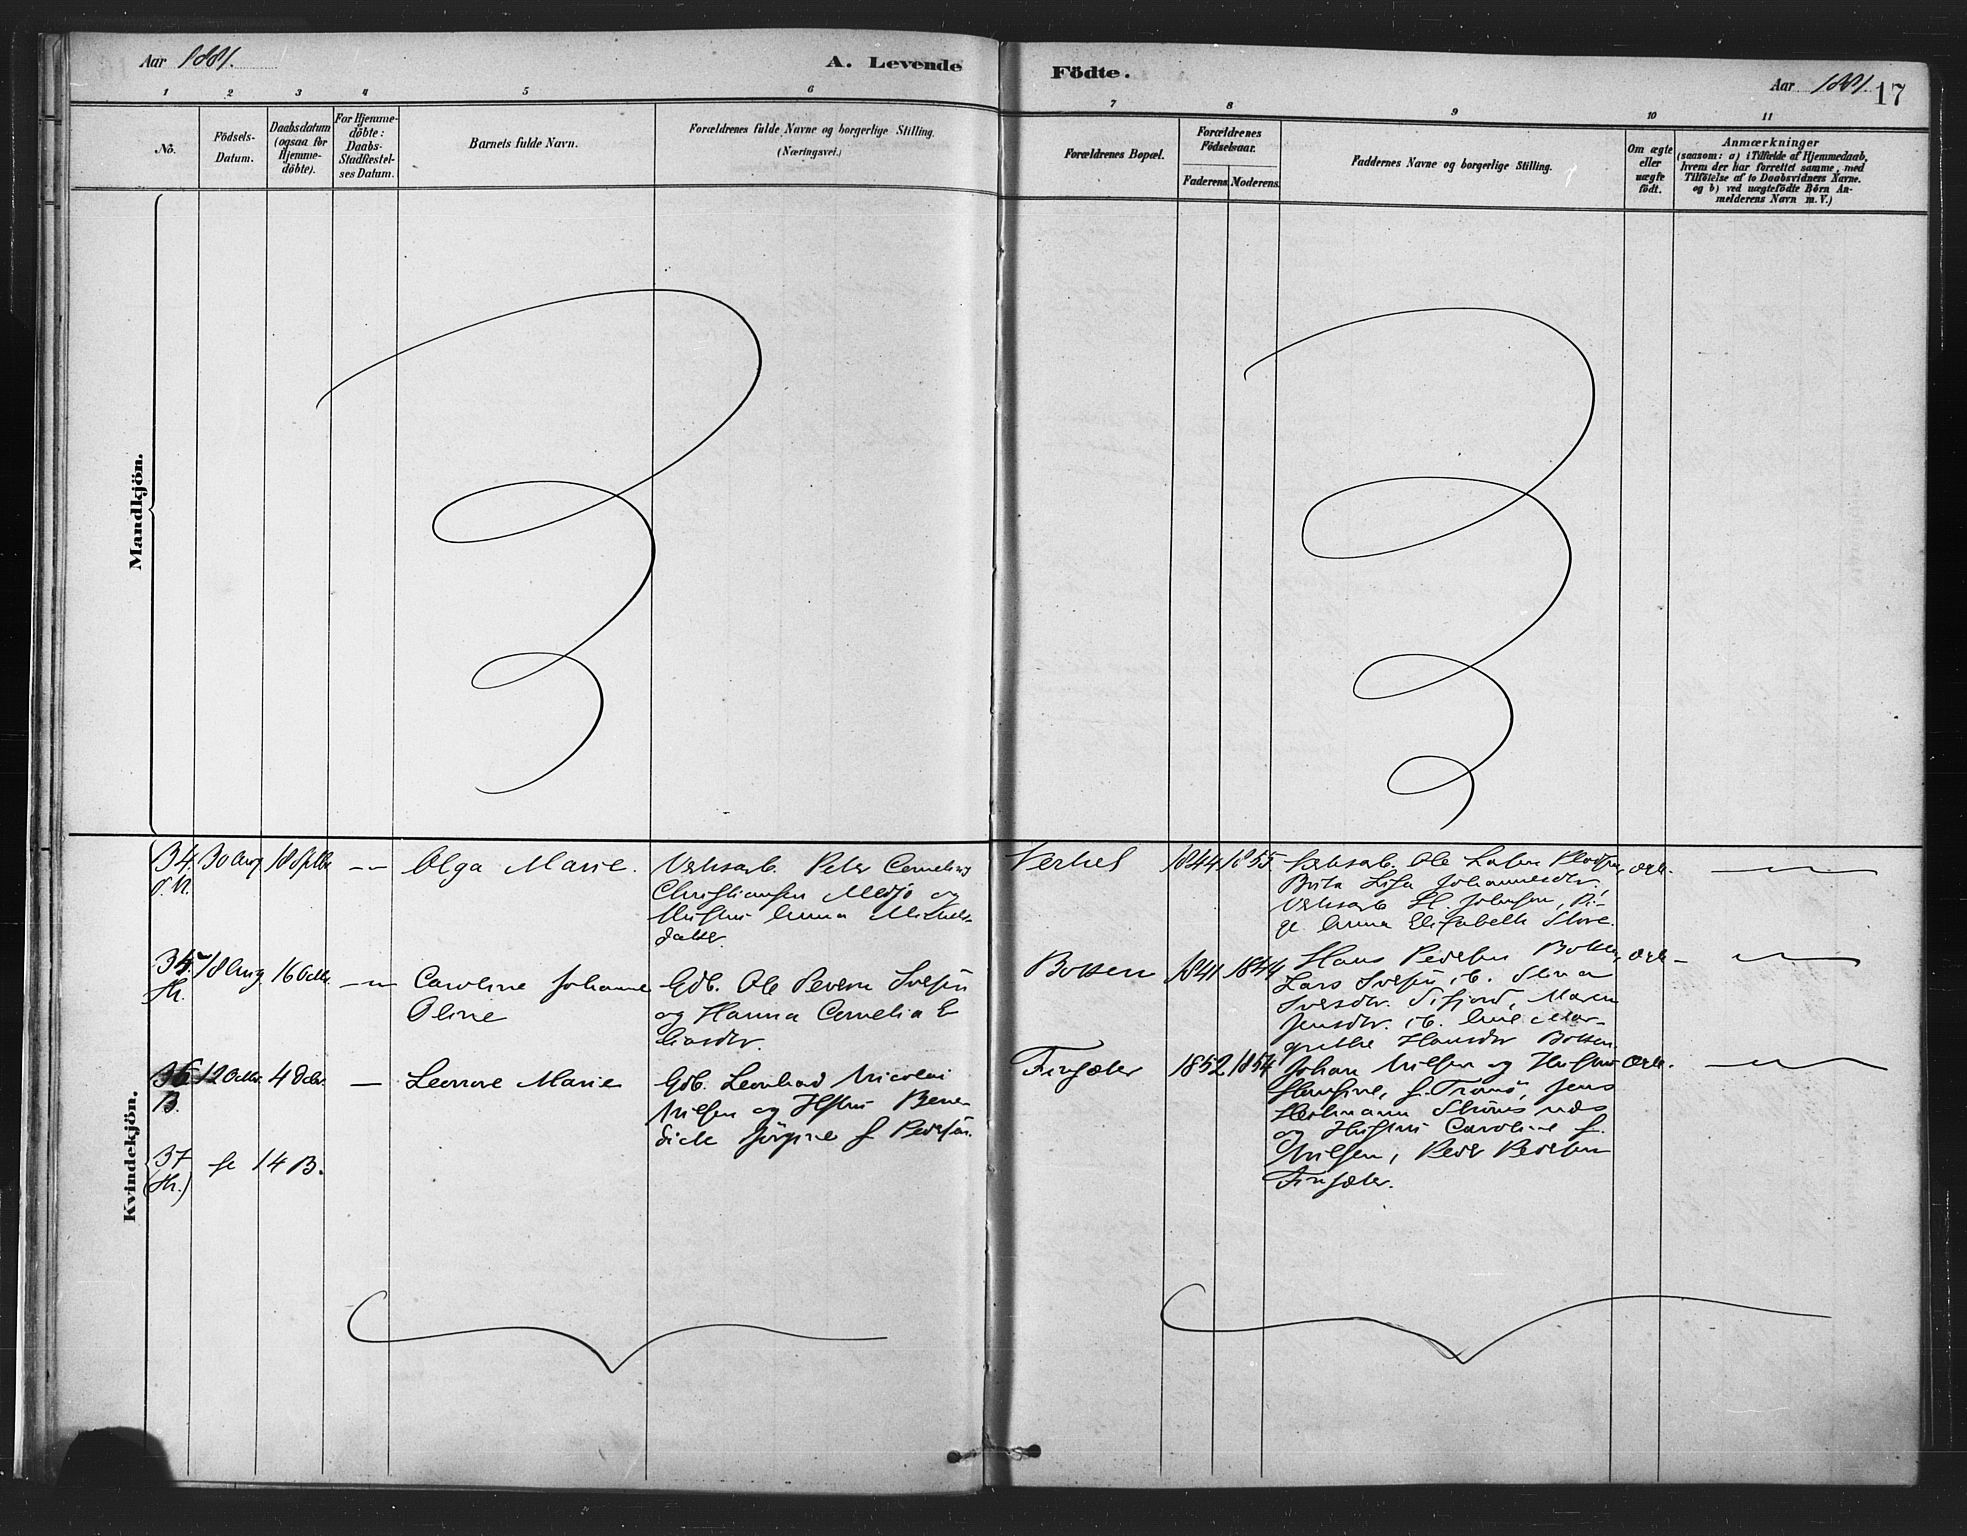 Aar 1881.
A. Levende
Födte.
Aar 1881.
17
1 2 3 4 5 6
7 8 9 10 11
No.
Födsels-
Datum.
Daabsdatum
(ogsaa for
Hjemme-
döbte).
For Hjemme-
döbte:
Daabs-
Stadfæstel-
ses Datum.
Barnets fulde Navn.
Forældrenes fulde Navne og borgerlige Stilling.
(Næringsvei.)
Forældrenes Bopæl.
Forældrenes
Födselsaar.
Faderens. Moderens.
Faddernes Navne og borgerlige Stilling.
Om ægte
eller
uægte
födt.
Anmærkninger
(saasom: a) i Tilfælde af Hjemmedaab,
hvem der har forrettet samme, med
Tilföielse af to Daabsvidners Navne.
og b) ved uægtefödte Börn An-
melderens Navn m. V.)
Mandkjön.
Kvindekjön.
34.
30 Aug
18 Septbr
Olga Marie.
Verksarb. Peter Cornelius
Christiansen Medjo og
Hustru Anna Michels-
datter.
1844
1855.
Verksarb. Ole Larsen
Brita Lisa Johannesdtr.,
Verksarb. H. Johnsen, Pi-
ge Anna Elisabeth
Ægte.
35
18 Aug.
16 Octbr.
Caroline Johanne
Oline
Gdb. Ole Pedern
og Hanna Cornelia E-
liasdtr.
Botten
1841
1844
Hans Pedersen Botten,
Lars
Sifjord, Maren
Jensdtr. ib. Ane Mar-
grethe Hansdtr Botten.
Ægte
36
B.
12 Octbr.
4 Decbr.
Leonore Marie
Gdb. Leonhard Nicolai
Nilsen og Hstru Bene-
dicte Jörgine f. Pedersen.
Finsæter
1852
1854
Johan Nilsen og Hustru
Hansine, f. Tromsö, Jens
Heilmann Strömsnes
og Hustru Caroline f.
Nilsen, Peder Pedersen
Finsæter.
Ægte.
37
se 14 B.